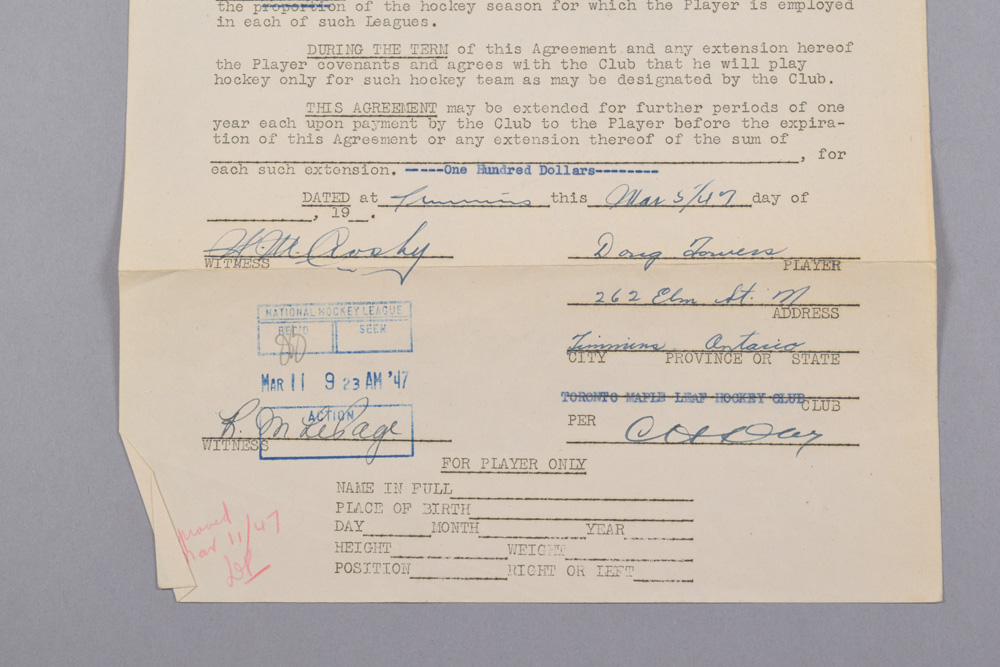 the proportion of the hockey season for which the Player is employed
in each of such Leagues.
DURING THE TERM of this Agreement and any extension hereof
the Player covenants and agrees with the Club that he will play
hockey only for such hockey team as may be designated by the Club.
THIS AGREEMENT may be extended for further periods of one
year each upon payment by the Club to the Player before the expira-
tion of this Agreement or any extension thereof of the sum of
, for
each such extension. -----One Hundred Dollars--------
DATED at Timmins this Mar 5/47 day of
, 19 .
H. M. Crosby Doug Towers
WITNESS PLAYER
262 Elm St. N
ADDRESS
NATIONAL HOCKEY LEAGUE
REC'D SEEN
Timmins Ontario
CITY PROVINCE OR STATE
MAR 11 9 23 AM '47
TORONTO MAPLE LEAF HOCKEY CLUB CLUB
ACTION
R. M. LePage PER
WITNESS
FOR PLAYER ONLY
NAME IN FULL
PLACE OF BIRTH
DAY MONTH YEAR
HEIGHT WEIGHT
POSITION RIGHT OR LEFT
Mar 11/47